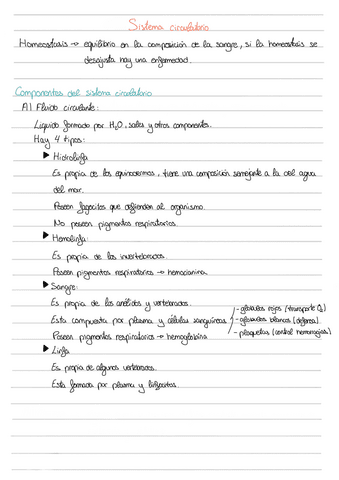 Sistema circulatorio
Homeostasis → equilibrio en la composición de la sangre, si la homeostasis se
desajusta hay una enfermedad.
Componentes del sistema circulatorio
A) Fluido circulante:
Líquido formado por H₂O, sales y otros componentes.
Hay 4 tipos:
▶ Hidrolinfa
Es propia de los equinodermos, tiene una composición semejante a la del agua
del mar.
Poseen fagocitos que defienden al organismo.
No poseen pigmentos respiratorios.
▶ Hemolinfa:
Es propia de los invertebrados.
Poseen pigmentos respiratorios → hemocianina
▶ Sangre:
Es propia de los anélidos y vertebrados.
Esta compuesta por plasma y células sanguíneas
- glóbulos rojos (transporte O₂)
- glóbulos blancos (defensa)
- plaquetas (control hemorragias)
Poseen pigmentos respiratorios → hemoglobina
▶ Linfa
Es propia de algunos vertebrados.
Está formada por plasma y linfocitos